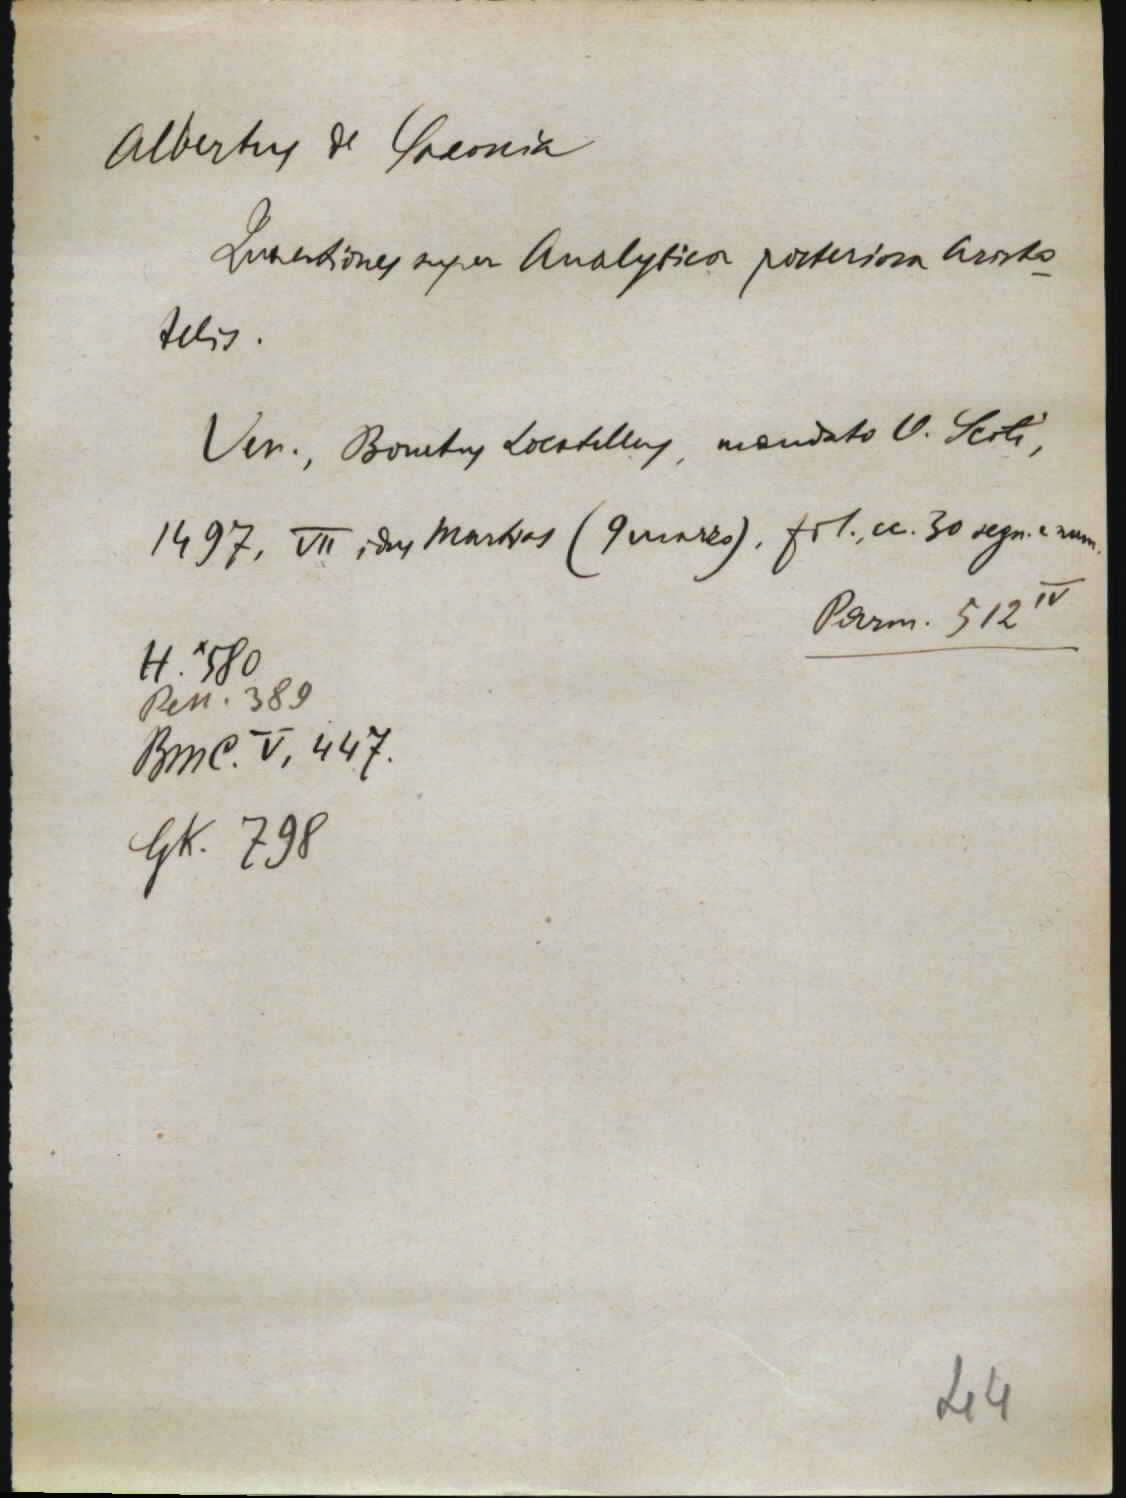 Albertus de Saxonia
Quaestiones super Analytica posteriora Aristo
telis.
Ven., Bonetus Locatellus, mandato O. Scoti,
1497, VII idus Martias (9 marzo). fol., cc. 30 segn. e num.
Parm. 512 IV
H. *580
Pell. 389
BMC. V, 447.
GK. 798